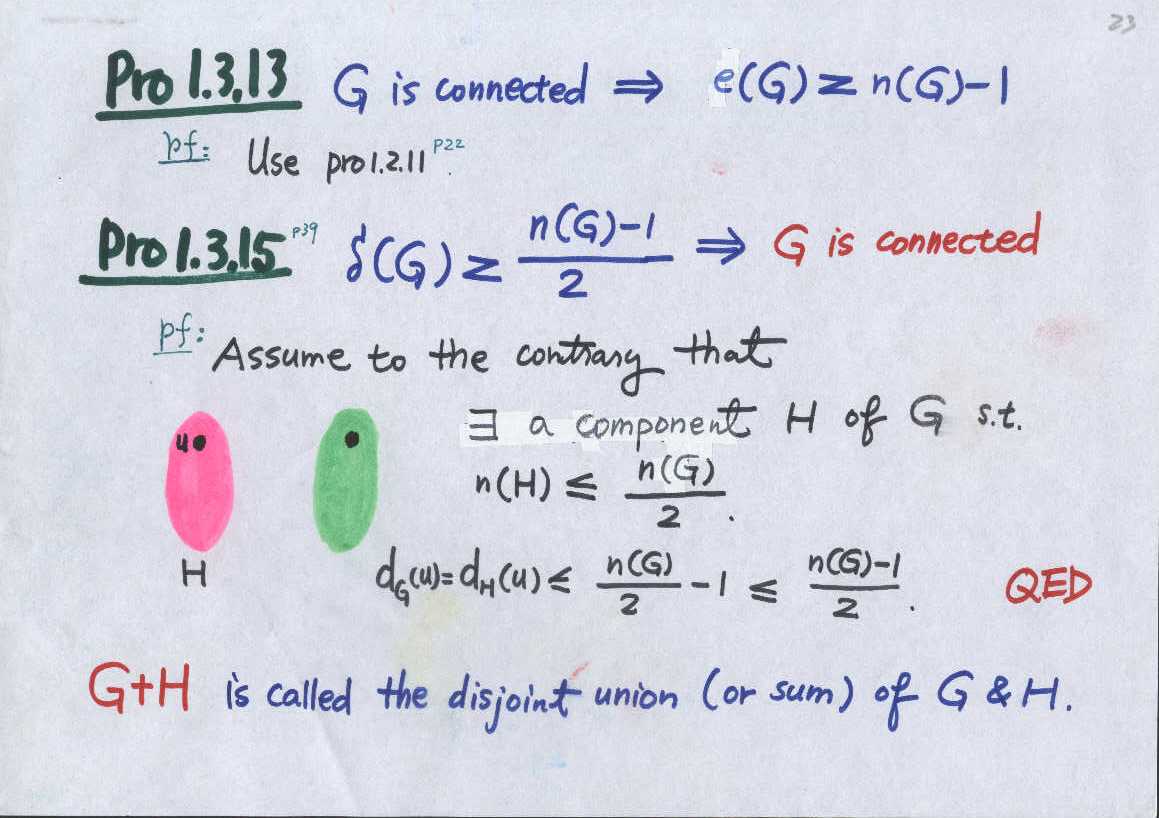 23
Pro 1.3.13 G is connected ⇒ e(G) ≥ n(G)-1
pf: Use pro 1.2.11 P22.
Pro 1.3.15 P39 δ(G) ≥ \frac{n(G)-1}{2} ⇒ G is connected
pf: Assume to the contrary that
∃ a component H of G s.t.
u
n(H) ≤ \frac{n(G)}{2}.
H
d_G(u) = d_H(u) ≤ \frac{n(G)}{2} - 1 ≤ \frac{n(G)-1}{2}. QED
G+H is called the disjoint union (or sum) of G & H.